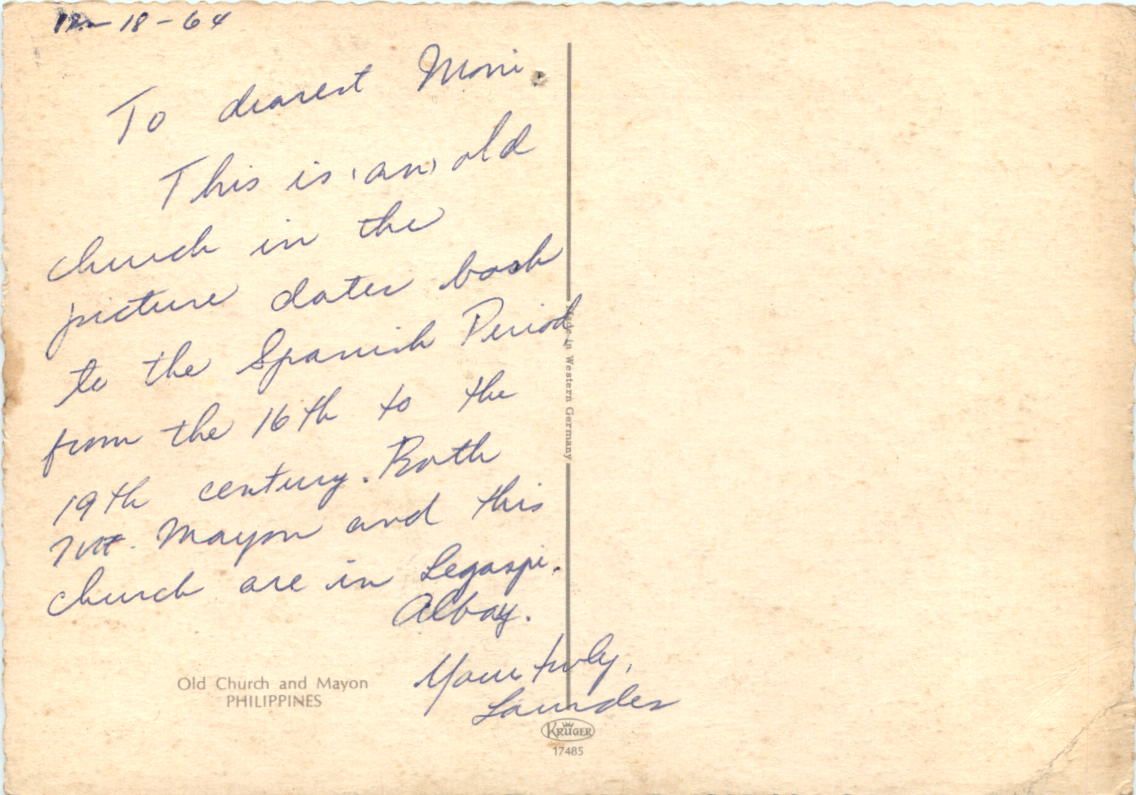 12-18-64
To dearest Moni.
This is (an) old
church in the
picture dates back
to the Spanish Period
from the 16th to the
19th century. Both
Mt. Mayon and this
church are in Legaspi.
Albay.
Yours truly,
Lourdes
Old Church and Mayon
PHILIPPINES
Made in Western Germany
KRÜGER
17485